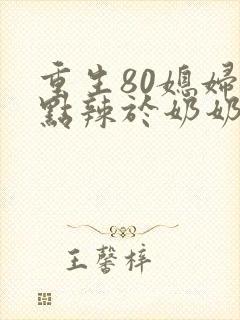 重生80媳婦
點辣於奶奶
王馨梓